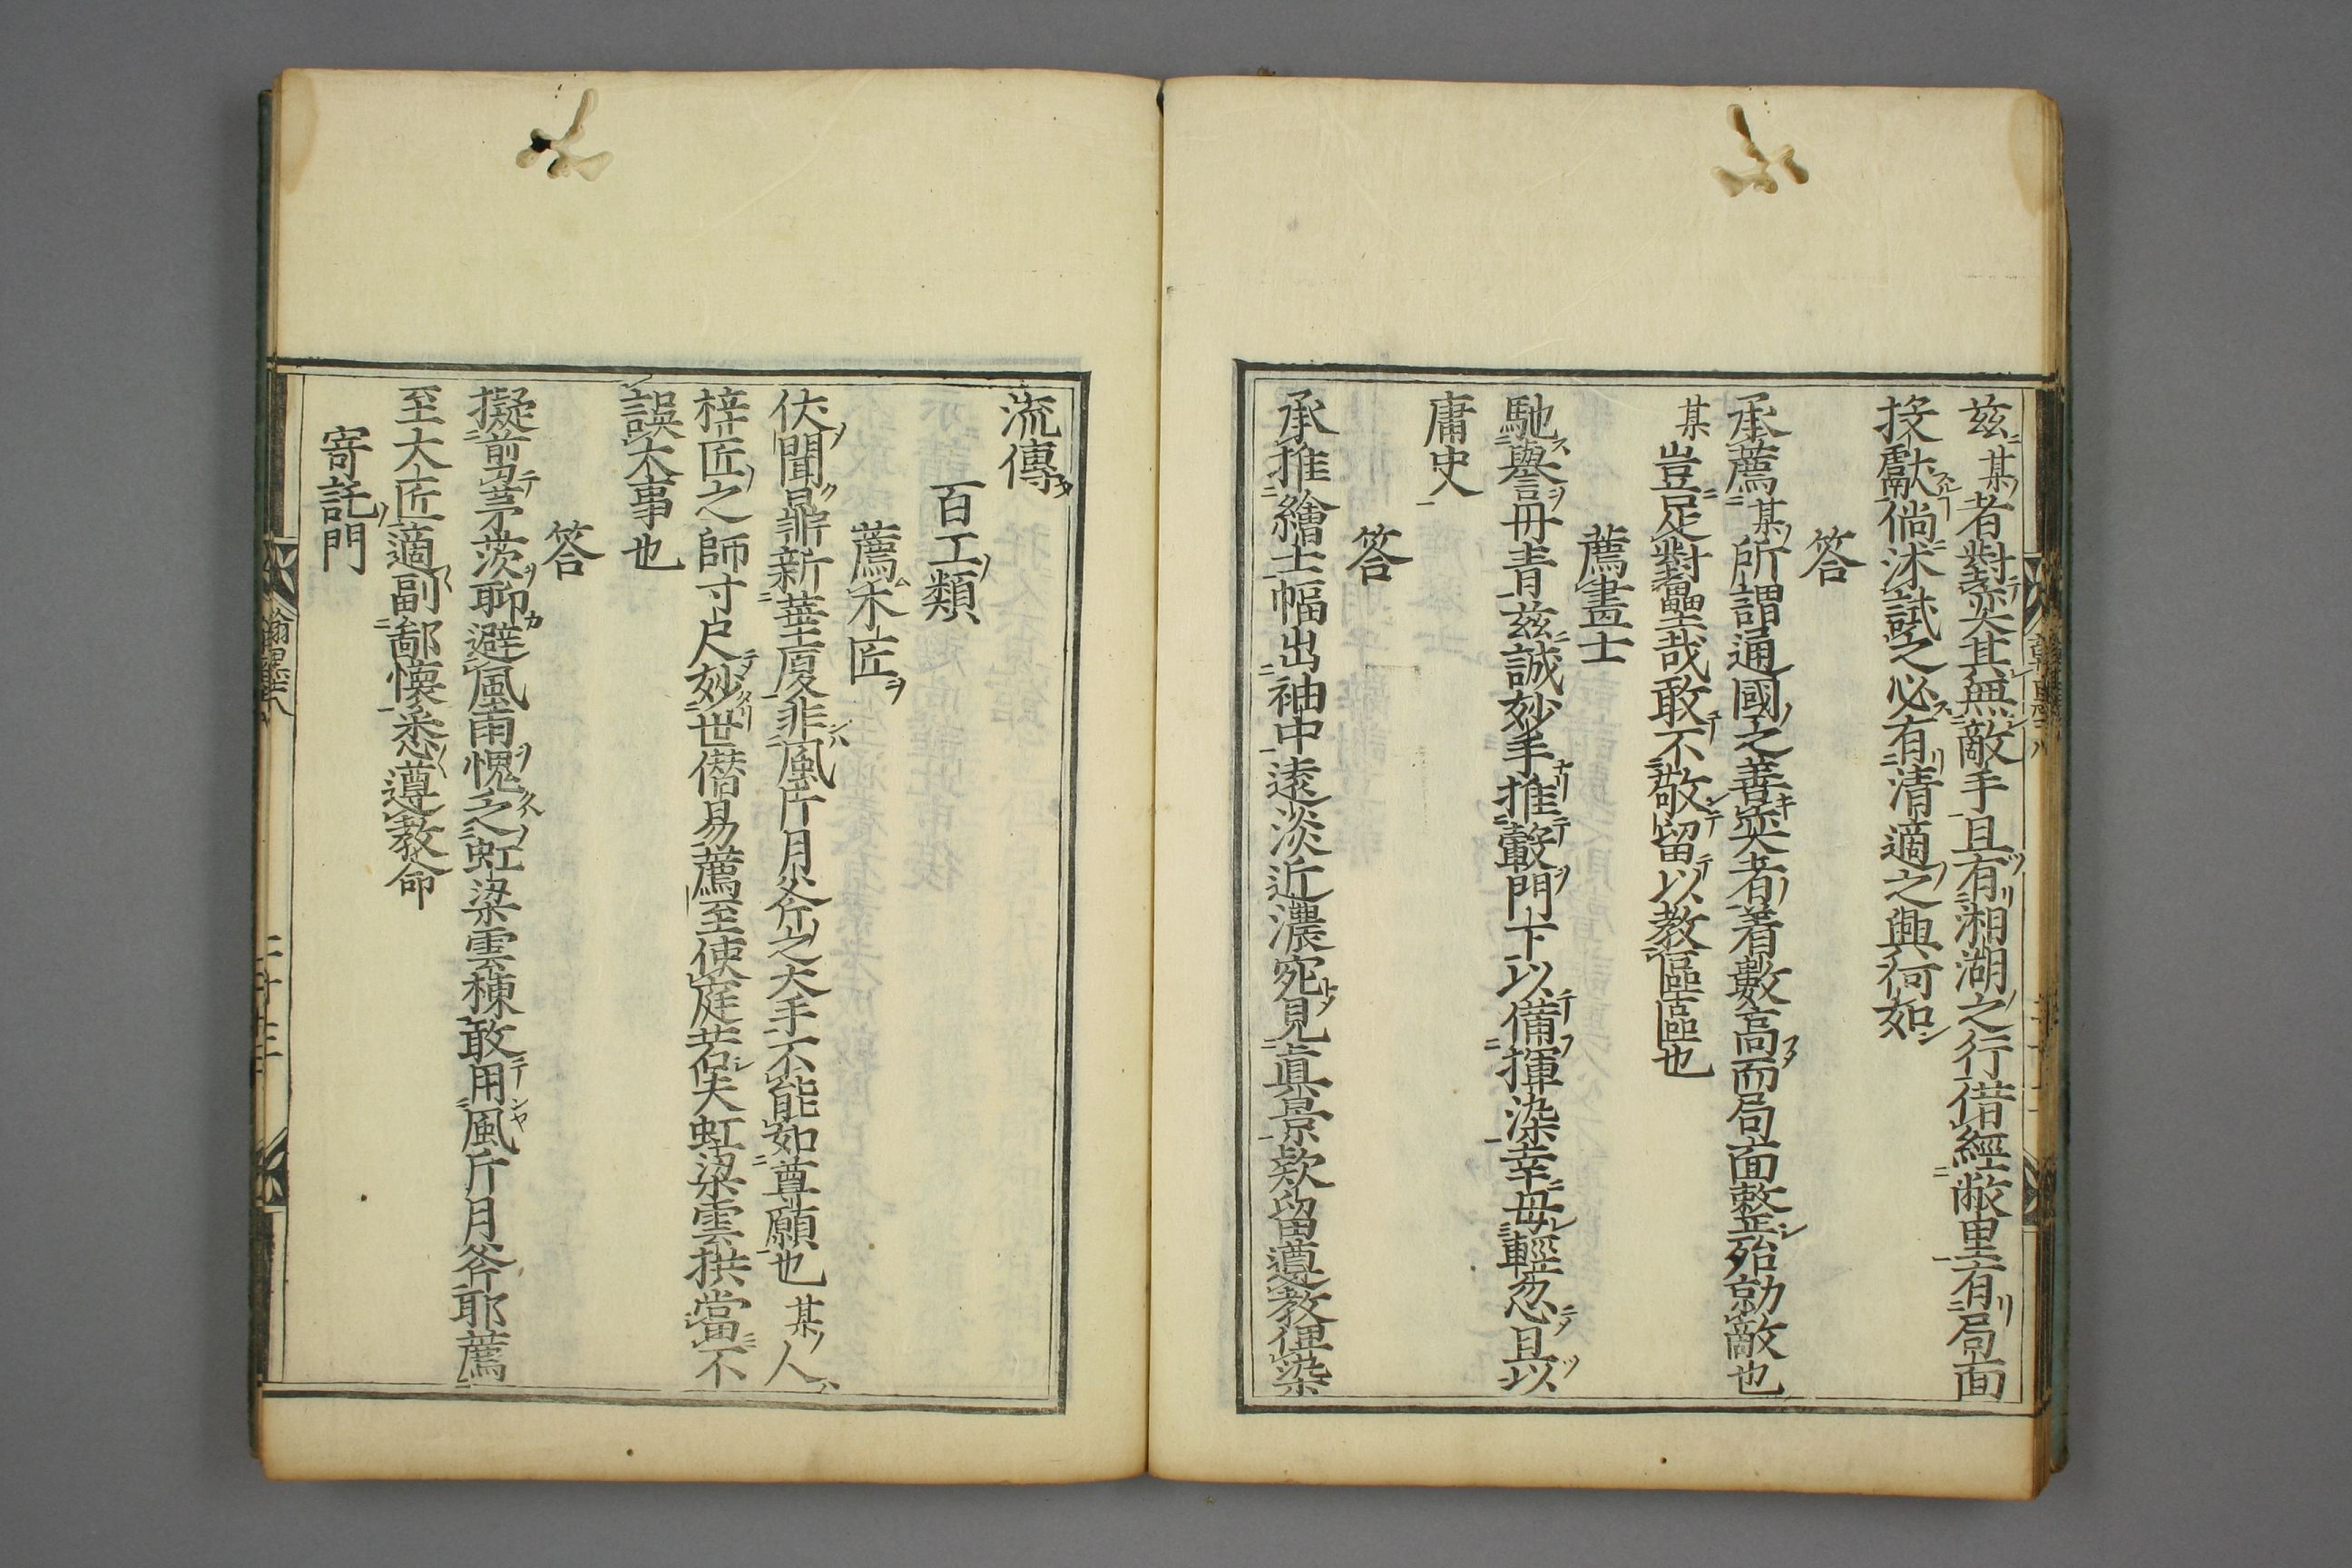 兹某者對奕其無敵手且有湘湖之行借經敝里有局面
投獻倘沭試之必有清適之興何如
答
承薦某所謂通國之善奕者着數高而局面整殆勍敵也
某豈足對壘哉敢不敬留以教區區也
薦畫士
馳譽丹青兹誠妙手推轂門下以備揮染幸毋輕忽且以
庸史
答
承推繪士幅出袖中遠淡近濃宛見真景欵留遵教俚染
流傳
百工類
薦木匠
伏聞鼎新華厦非風斤月斧之大手不能如尊願也某人
梓匠之師寸尺妙世僭易薦至使庭若夫虹梁雲拱當不
誤大事也
答
擬前剪茅茨聊避風雨愧乏虹梁雲棟敢用風斤月斧耶薦
至大匠適副鄙懷悉遵教命
寄託門
翰墨
二十三